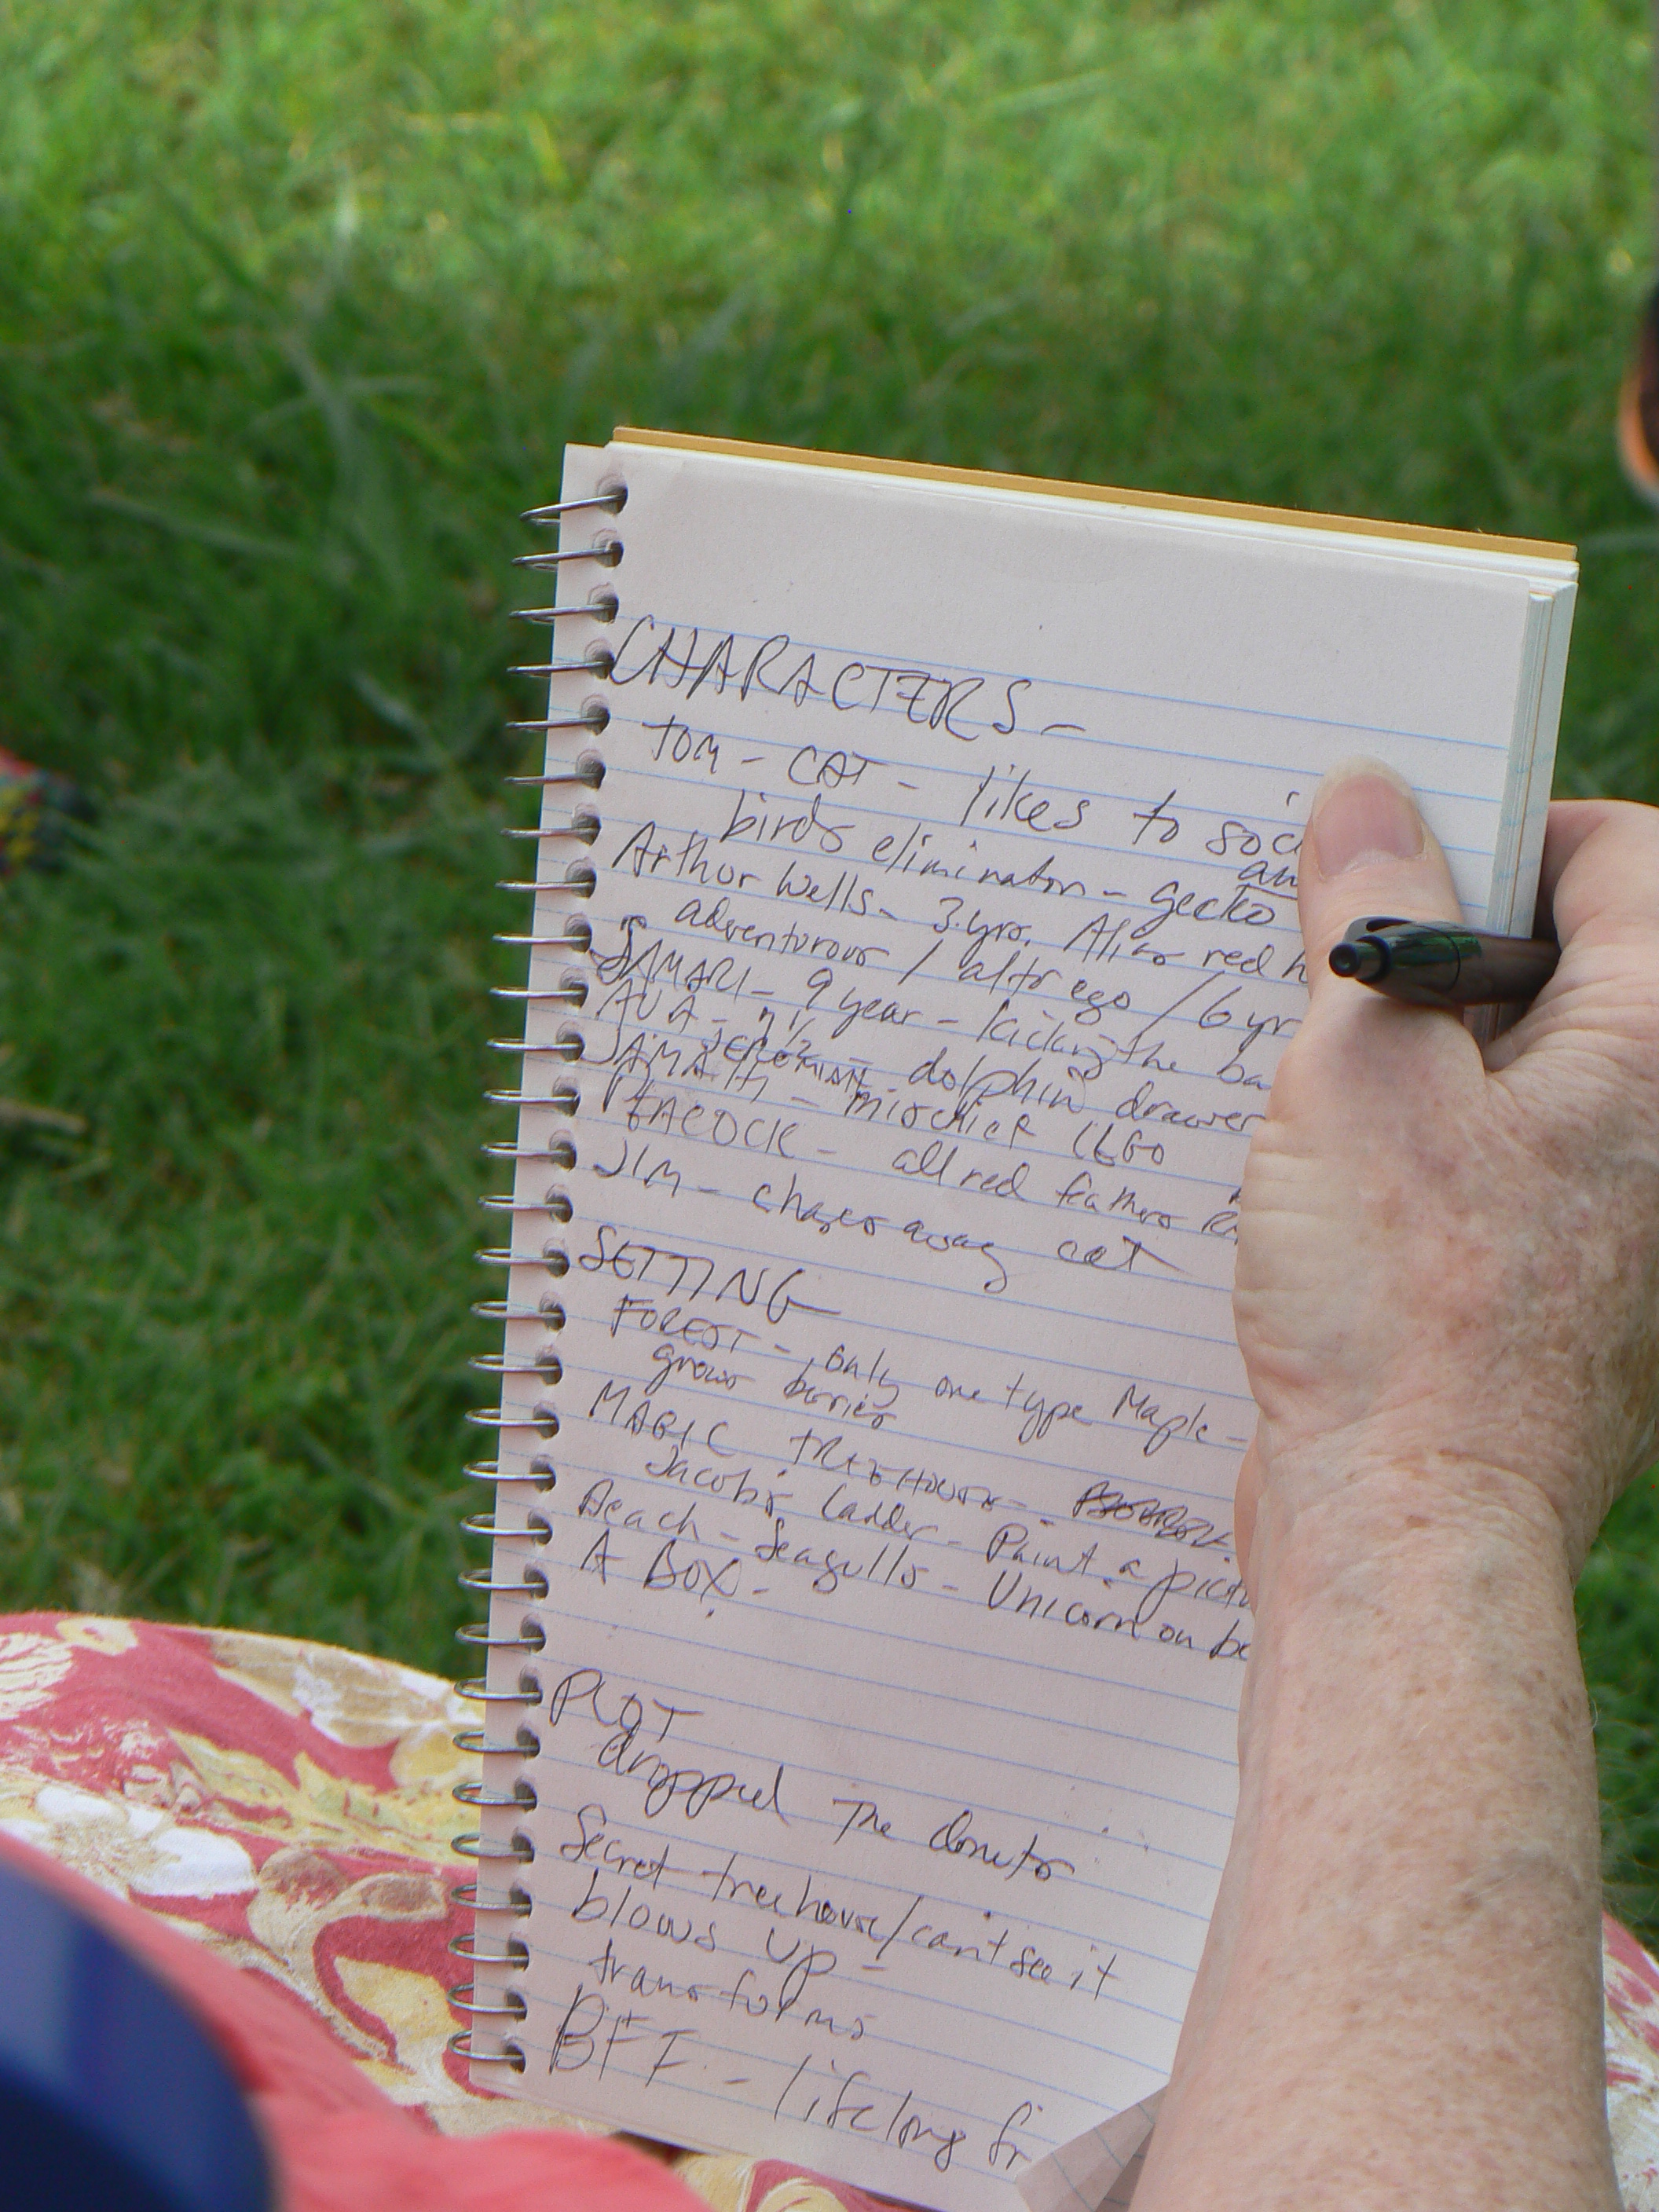 CHARACTERS -
TOM - CAT - likes to soci
birds eliminator - gecko an
Arthur Wells - 3 yrs. Alias red h
adventurous / altr ego / 6 yr
SAMARI - 9 year - kicking the ba
AVA - 7 1/2 - dolphin drawer
JEROMIAH
- mischief LEGO
PEACOCK - all red feathers
JIM - chases away cat
SETTING
FOREST - only one type Maple -
grows barrier
MAGIC TREEHOUSE -
Jacob's ladder - Paint a pictu
Beach - Seagulls - Unicorn on be
A BOX -
PLOT
dropped the donuts
Secret treehouse/can't see it
blows up -
transforms
BFF - lifelong fr